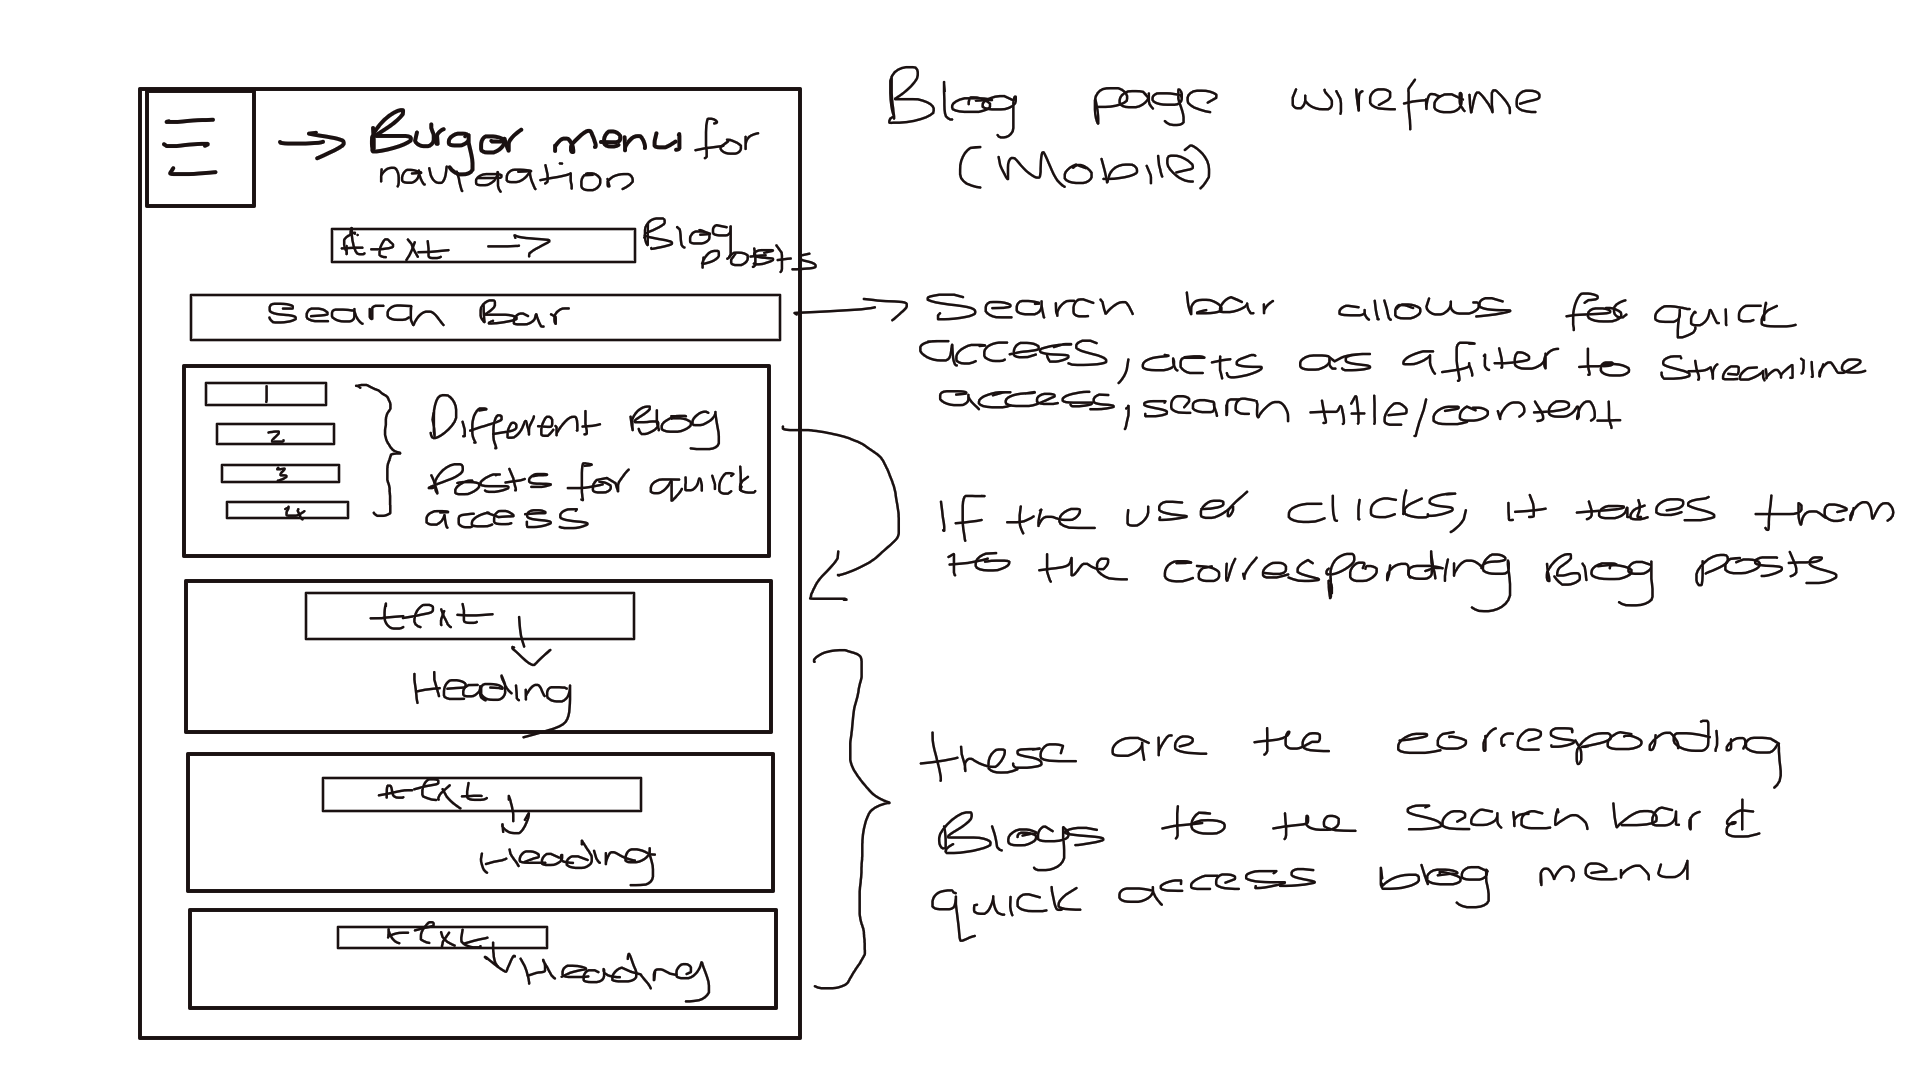 Blog page wireframe
(Mobile)
→ Burger menu for
navigation
text → Blog
posts
Search Bar
Search bar allows for quick
access, acts as a filter to streamline
access, search title/content
1
2
3
4
Different Blog
Posts for quick
access
If the user clicks, it takes them
to the corresponding Blog posts
text
Heading
text
Heading
text
Heading
these are the corresponding
Blogs to the search bar &
quick access blog menu